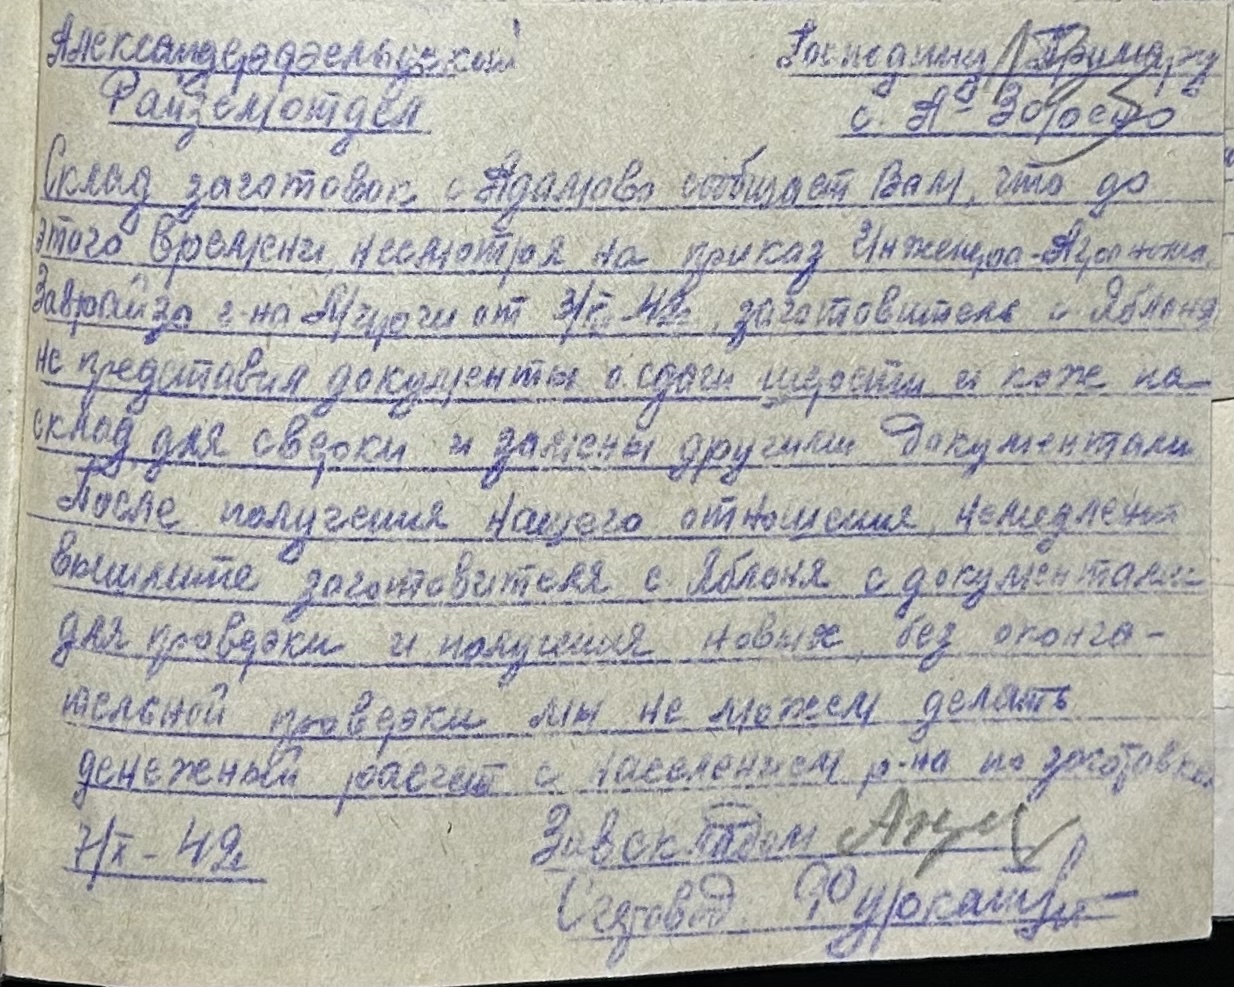 Александерфэльдский
Господину Примарю
Райземотдел
с. А
Склад заготовок с Адамово сообщает Вам, что до
этого времени, несмотря на приказ Инженера-Агронома
Заврайзо г-на от 3/X-42г, заготовитель с Яблоня
не представил документы о сдачи шерсти и коже на
склад для сверки и замены другими документами
После получения нашего отношения, немедленно
вышлите заготовителя с. Яблоня с документами
для проверки и получения новых, без оконча-
тельной проверки мы не можем делать
денежный расчет с населением р-на по заготовке.
7/X-42г
Завскладом
Счетовод